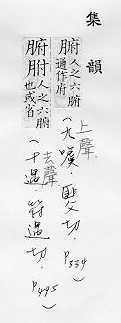 集韻
腑 人之六腑通作府
上聲
（九噳．匪父切．P334）
腑胕 人之六腑也或省
去聲
（十遇．符遇切．P495）